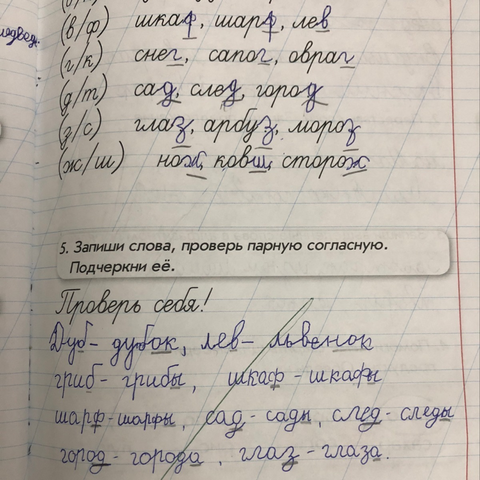 (в/ф) шкаф, шарф, лев
медвед-
(г/к) снег, сапог, овраг
(д/т) сад, след, город
(з/с) глаз, арбуз, мороз
(ж/ш) нож, ковш, сторож
5. Запиши слова, проверь парную согласную.
Подчеркни её.
Проверь себя!
Дуб - дубок, лев - львенок
гриб - грибы, шкаф - шкафы
шарф - шарфы, сад - сады, след - следы
город - города, глаз - глаза.